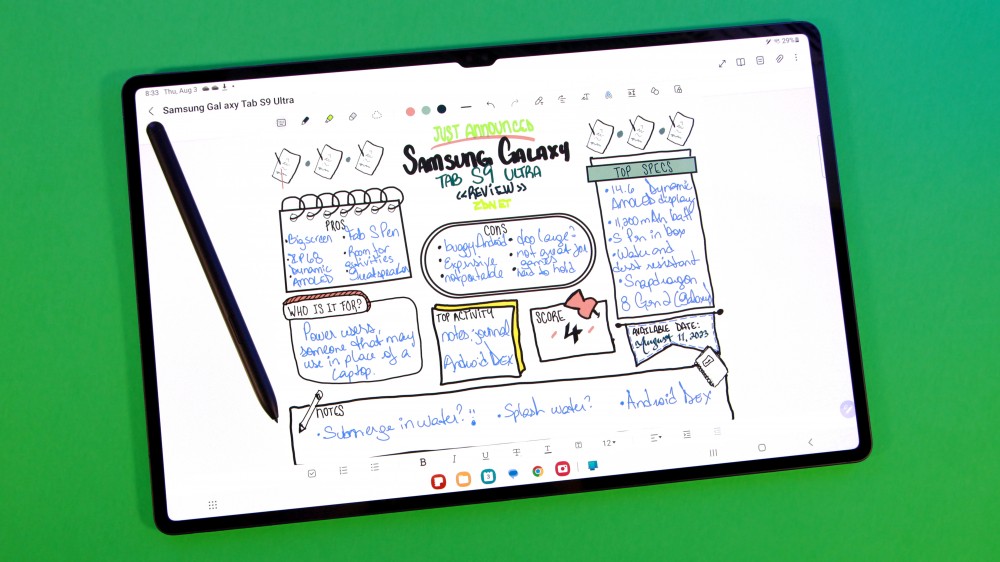 8:33 Thu, Aug 3
29%
Samsung Gal axy Tab S9 Ultra
JUST ANNOUNCED
SAMSUNG GALAXY
TAB S9 ULTRA
<<REVIEW>>
ZDNET
PROS
• Big screen
IP68
Dynamic
AMOLED
• Fab S Pen
• Room for
activities
• Great speakers
CONS
• buggy Android
• Expensive
• not portable
• too large?
• not great for
games
• hard to hold
TOP SPECS
• 14.6 Dynamic
AMOLED display
• 11,200 mAh batt
• S Pen in box
• Water and
dust resistant
• Snapdragon
8 Gen 2 (Galaxy)
WHO IS IT FOR?
Power users,
someone that may
use in place of a
laptop.
TOP ACTIVITY
notes, journal
Android DEX
SCORE
4
AVAILABLE DATE:
August 11, 2023
NOTES
• Submerge in water?!
• Splash water?
• Android DEX
B I U T T 12